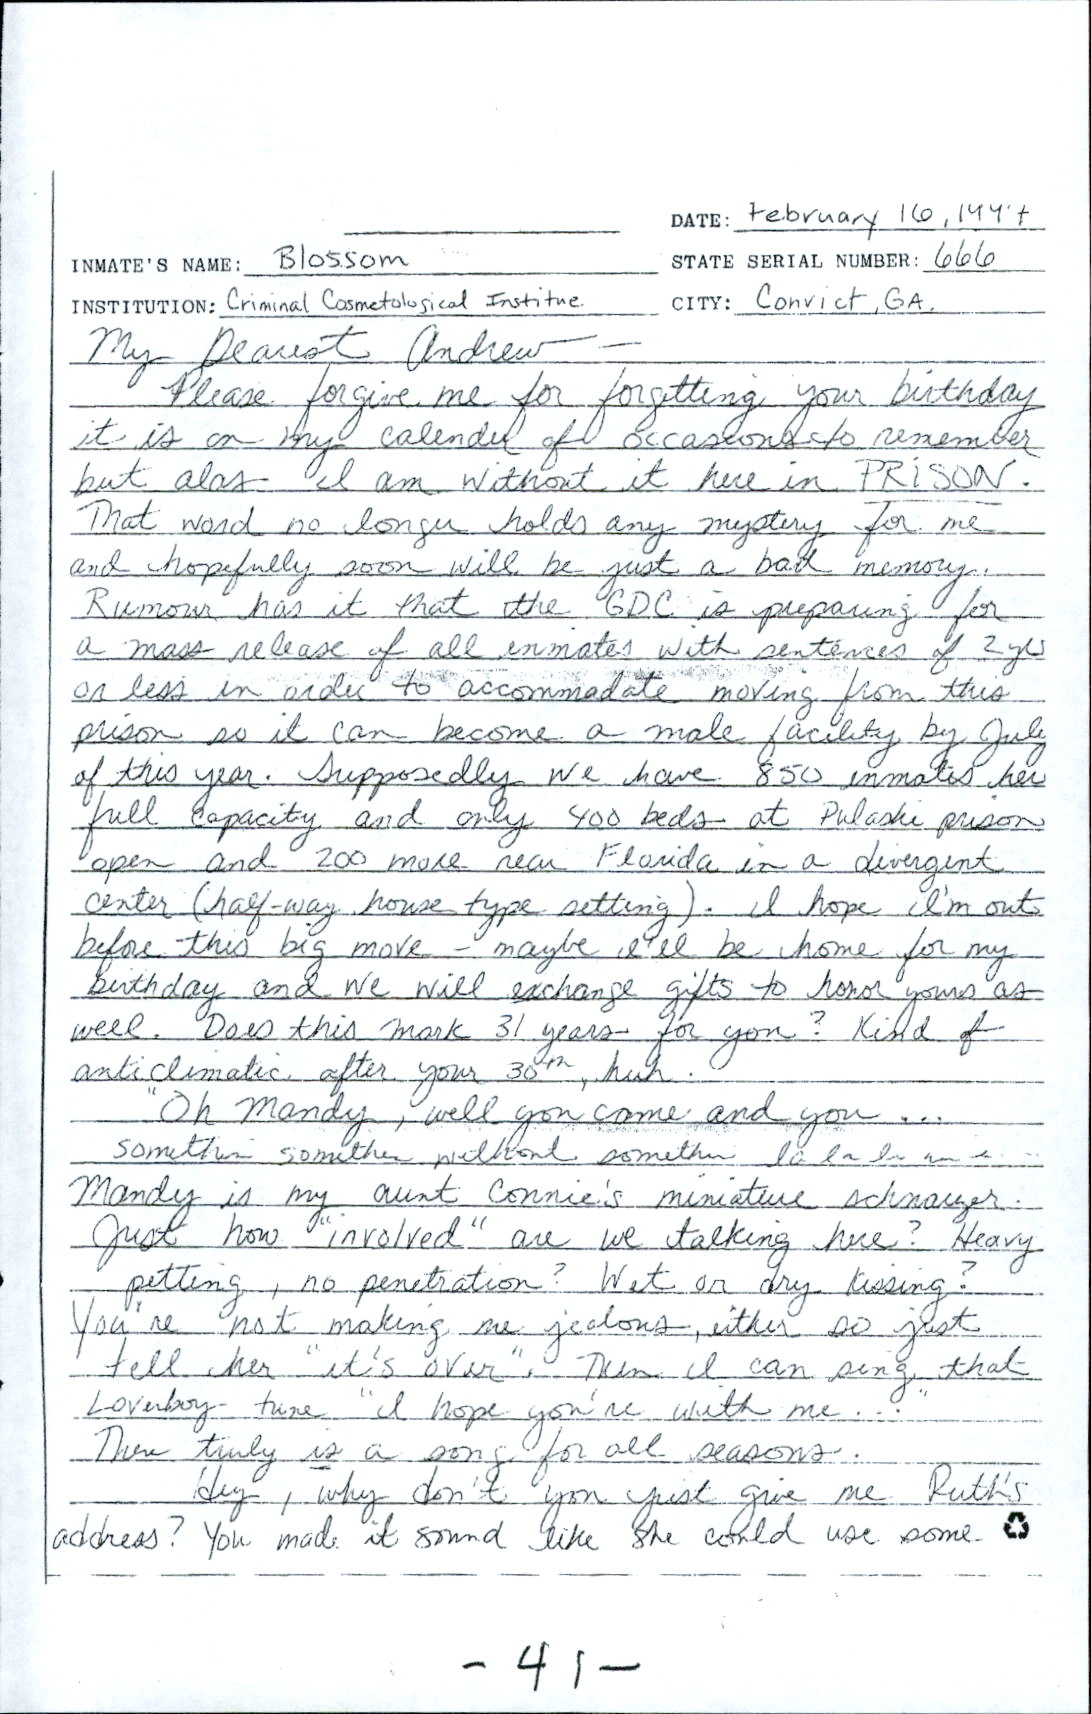 DATE: February 16, 199
INMATE'S NAME: Blossom STATE SERIAL NUMBER: 666
INSTITUTION: Criminal Cosmetological Institue. CITY: Convict, GA.
My Dearest Andrew —
Please forgive me for forgetting your birthday
it is on my calender of occasions to remember
but alas I am without it here in PRISON.
That word no longer holds any mystery for me
and hopefully soon will be just a bad memory.
Rumour has it that the GDC is preparing for
a mass release of all inmates with sentences of 2 yrs
or less in order to accommadate moving from this
prison so it can become a male facility by July
of this year. Supposedly we have 850 inmates here
full capacity and only 400 beds at Pulaski prison
open and 200 more near Florida in a divergent
center (half-way house type setting). I hope I'm out
before this big move - maybe I'll be home for my
birthday and we will exchange gifts to honor yours as
well. Does this mark 31 years for you? Kind of
anticlimatic after your 30th, huh.
"Oh Mandy, well you came and you ...
somethin somethin without somethin la la la
Mandy is my aunt Connie's miniature schnauzer.
Just how "involved" are we talking here? Heavy
petting, no penetration? Wet or dry kissing?
You're not making me jealous, either so just
tell her "it's over". Then I can sing that
Loverboy tune "I hope you're with me..."
There truly is a song for all seasons.
Hey, why don't you just give me Ruth's
address? You made it sound like she could use some
-41-